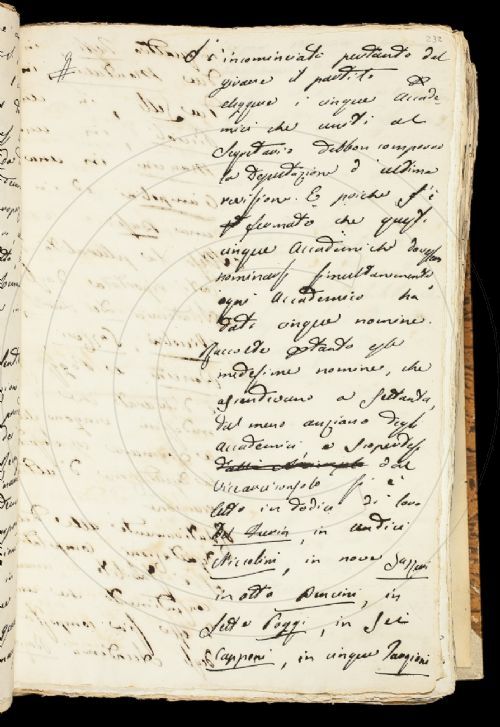 232
Si è incominciati pertanto dal
girare il partito
eleggere i cinque Accade
mici che uniti al
Segretario debbon comporre
la deputazione d'ultima
revisione. E poiche si è
fermato che questi
cinque Accademici dovessero
nominarsi simultaneamente
ogni Accademico ha
dati cinque nomine.
Raccolte ptanto esse
medesime nomine, che
ascendevano a settanta,
dal meno anziano degli
Accademici e
dal
Viceaciconsolo si è
letto in dodici di loro
Del Furia, in undici
Niccolini, in nove Zannoni
in otto Puccini, in
sette Poggi, in sei
Capponi, in cinque Targioni